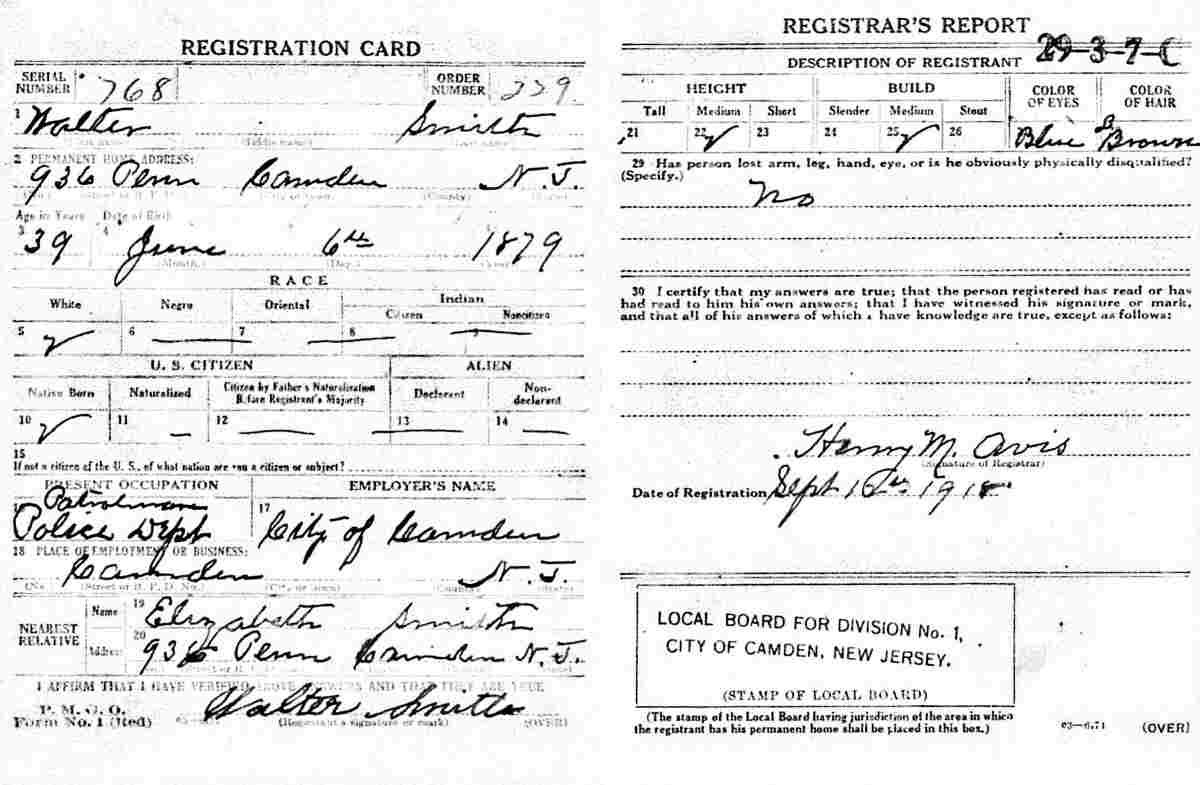 REGISTRATION CARD
SERIAL NUMBER 768 ORDER NUMBER 229
1 Walter Smith
(First name) (Middle name) (Last name)
2 PERMANENT HOME ADDRESS:
936 Penn Camden N. J.
(No.) (Street or R. F. D. No.) (City or town) (County) (State)
Age in Years Date of Birth
3 39 4 June 6th 1879
(Month.) (Day.) (Year.)
RACE
White Negro Oriental Indian
Citizen Noncitizen
5 ✓ 6 — 7 — 8 — 9 —
U. S. CITIZEN ALIEN
Native Born Naturalized Citizen by Father's Naturalization Before Registrant's Majority Declarant Non-declarant
10 ✓ 11 — 12 — 13 — 14 —
15
If not a citizen of the U. S., of what nation are you a citizen or subject?
PRESENT OCCUPATION EMPLOYER'S NAME
Patrolman
Police Dept 17 City of Camden
18 PLACE OF EMPLOYMENT OR BUSINESS:
Camden N. J.
(No.) (Street or R. F. D. No.) (City or town) (County) (State)
NEAREST RELATIVE
Name 19 Elizabeth Smith
Address 20 936 Penn Camden N. J.
I AFFIRM THAT I HAVE VERIFIED ABOVE ANSWERS AND THAT THEY ARE TRUE
P. M. G. O.
Form No. 1 (Red) Walter Smith
(Registrant's signature or mark) (OVER)
REGISTRAR'S REPORT
29-3-7-C
DESCRIPTION OF REGISTRANT
HEIGHT BUILD COLOR OF EYES COLOR OF HAIR
Tall Medium Short Slender Medium Stout
21 22 ✓ 23 24 25 ✓ 26 Blue Brown
29 Has person lost arm, leg, hand, eye, or is he obviously physically disqualified?
(Specify.)
No
30 I certify that my answers are true; that the person registered has read or has
had read to him his own answers; that I have witnessed his signature or mark,
and that all of his answers of which I have knowledge are true, except as follows:
Henry M. Avis
(Signature of Registrar)
Date of Registration Sept 1918
LOCAL BOARD FOR DIVISION No. 1,
CITY OF CAMDEN, NEW JERSEY.
(STAMP OF LOCAL BOARD)
(The stamp of the Local Board having jurisdiction of the area in which
the registrant has his permanent home shall be placed in this box.)
03—6171 (OVER)